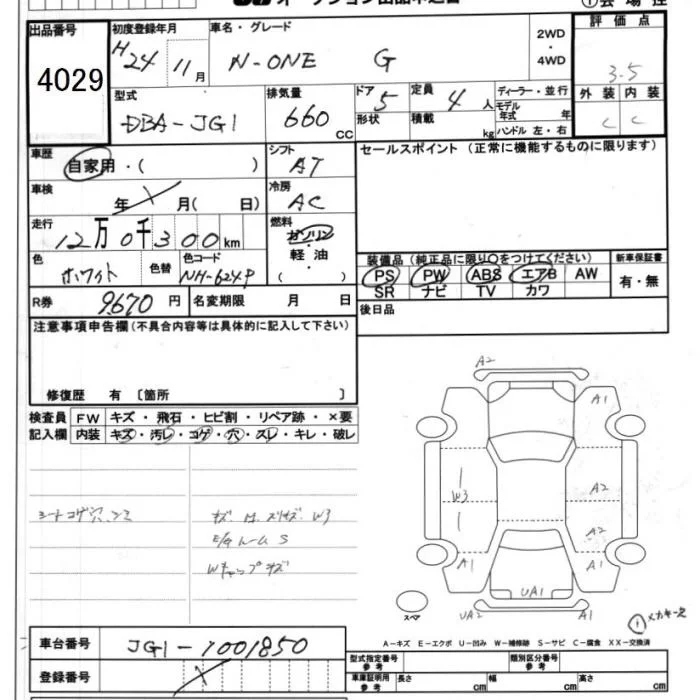 出品番号
4029
初度登録年月
H24 11月
車名・グレード
N-ONE G
2WD
・
4WD
評価点
3.5
外装 内装
C C
型式
DBA-JG1
排気量
660 CC
ドア 5
形状
定員 4人
積載 kg
ディーラー・並行
モデル年式 年
ハンドル 左・右
車歴
自家用・( )
シフト
AT
セールスポイント (正常に機能するものに限ります)
車検
年 月( 日)
冷房
AC
走行
12万0千300km
燃料
ガソリン
・
軽油
・
( )
色
ホワイト
色替
色コード
NH-624P
装備品 (純正品に限り○をつけてください)
PS PW ABS エアB AW
SR ナビ TV カワ
新車保証書
有・無
R券 9670円
名変期限 月 日
後日品
注意事項申告欄(不具合内容等は具体的に記入して下さい)
修復歴 有 〔箇所 〕
検査員記入欄
FW キズ・飛石・ヒビ割・リペア跡・×要
内装 キズ・汚レ・コゲ・穴・スレ・キレ・破レ
シートコゲ穴、シミ
W3
E/Gルーム S
Wキャップキズ
A2
A1
W3
A2
A2
A1
A1
UA1
UA2
A1
スペア
A-キズ E-エクボ U-凹み W-補修跡 S-サビ C-腐食 XX-交換済
車台番号
JG1-1001850
登録番号
型式指定番号
参考
類別区分番号
参考
車庫証明用
参考
長さ cm
幅 cm
高さ cm